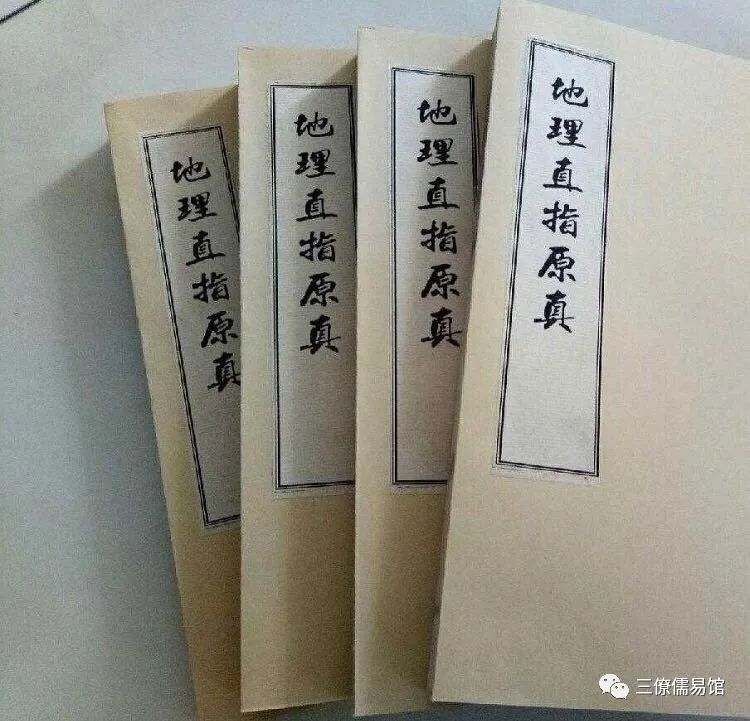 地理直指原真
地理直指原真
地理直指原真
地理直指原真
三僚儒易馆